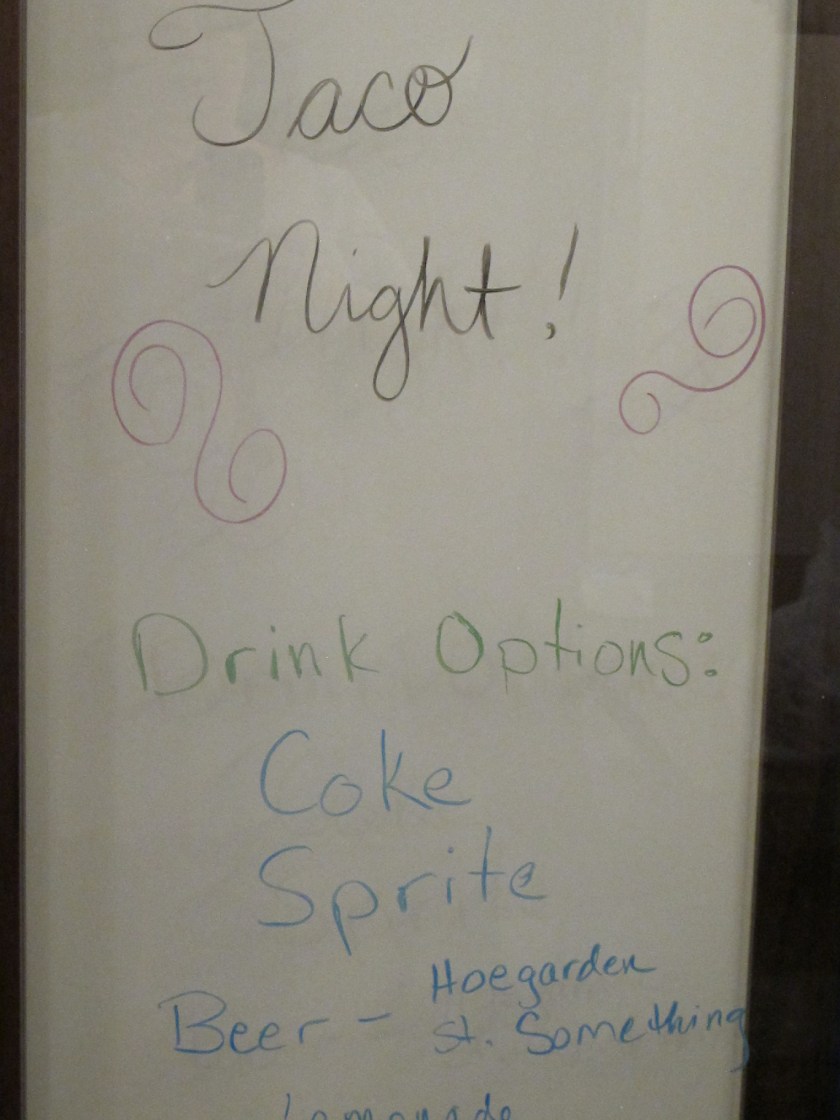 Taco
Night!
Drink Options:
Coke
Sprite
Beer - Hoegarden
St. Something
Lemonade